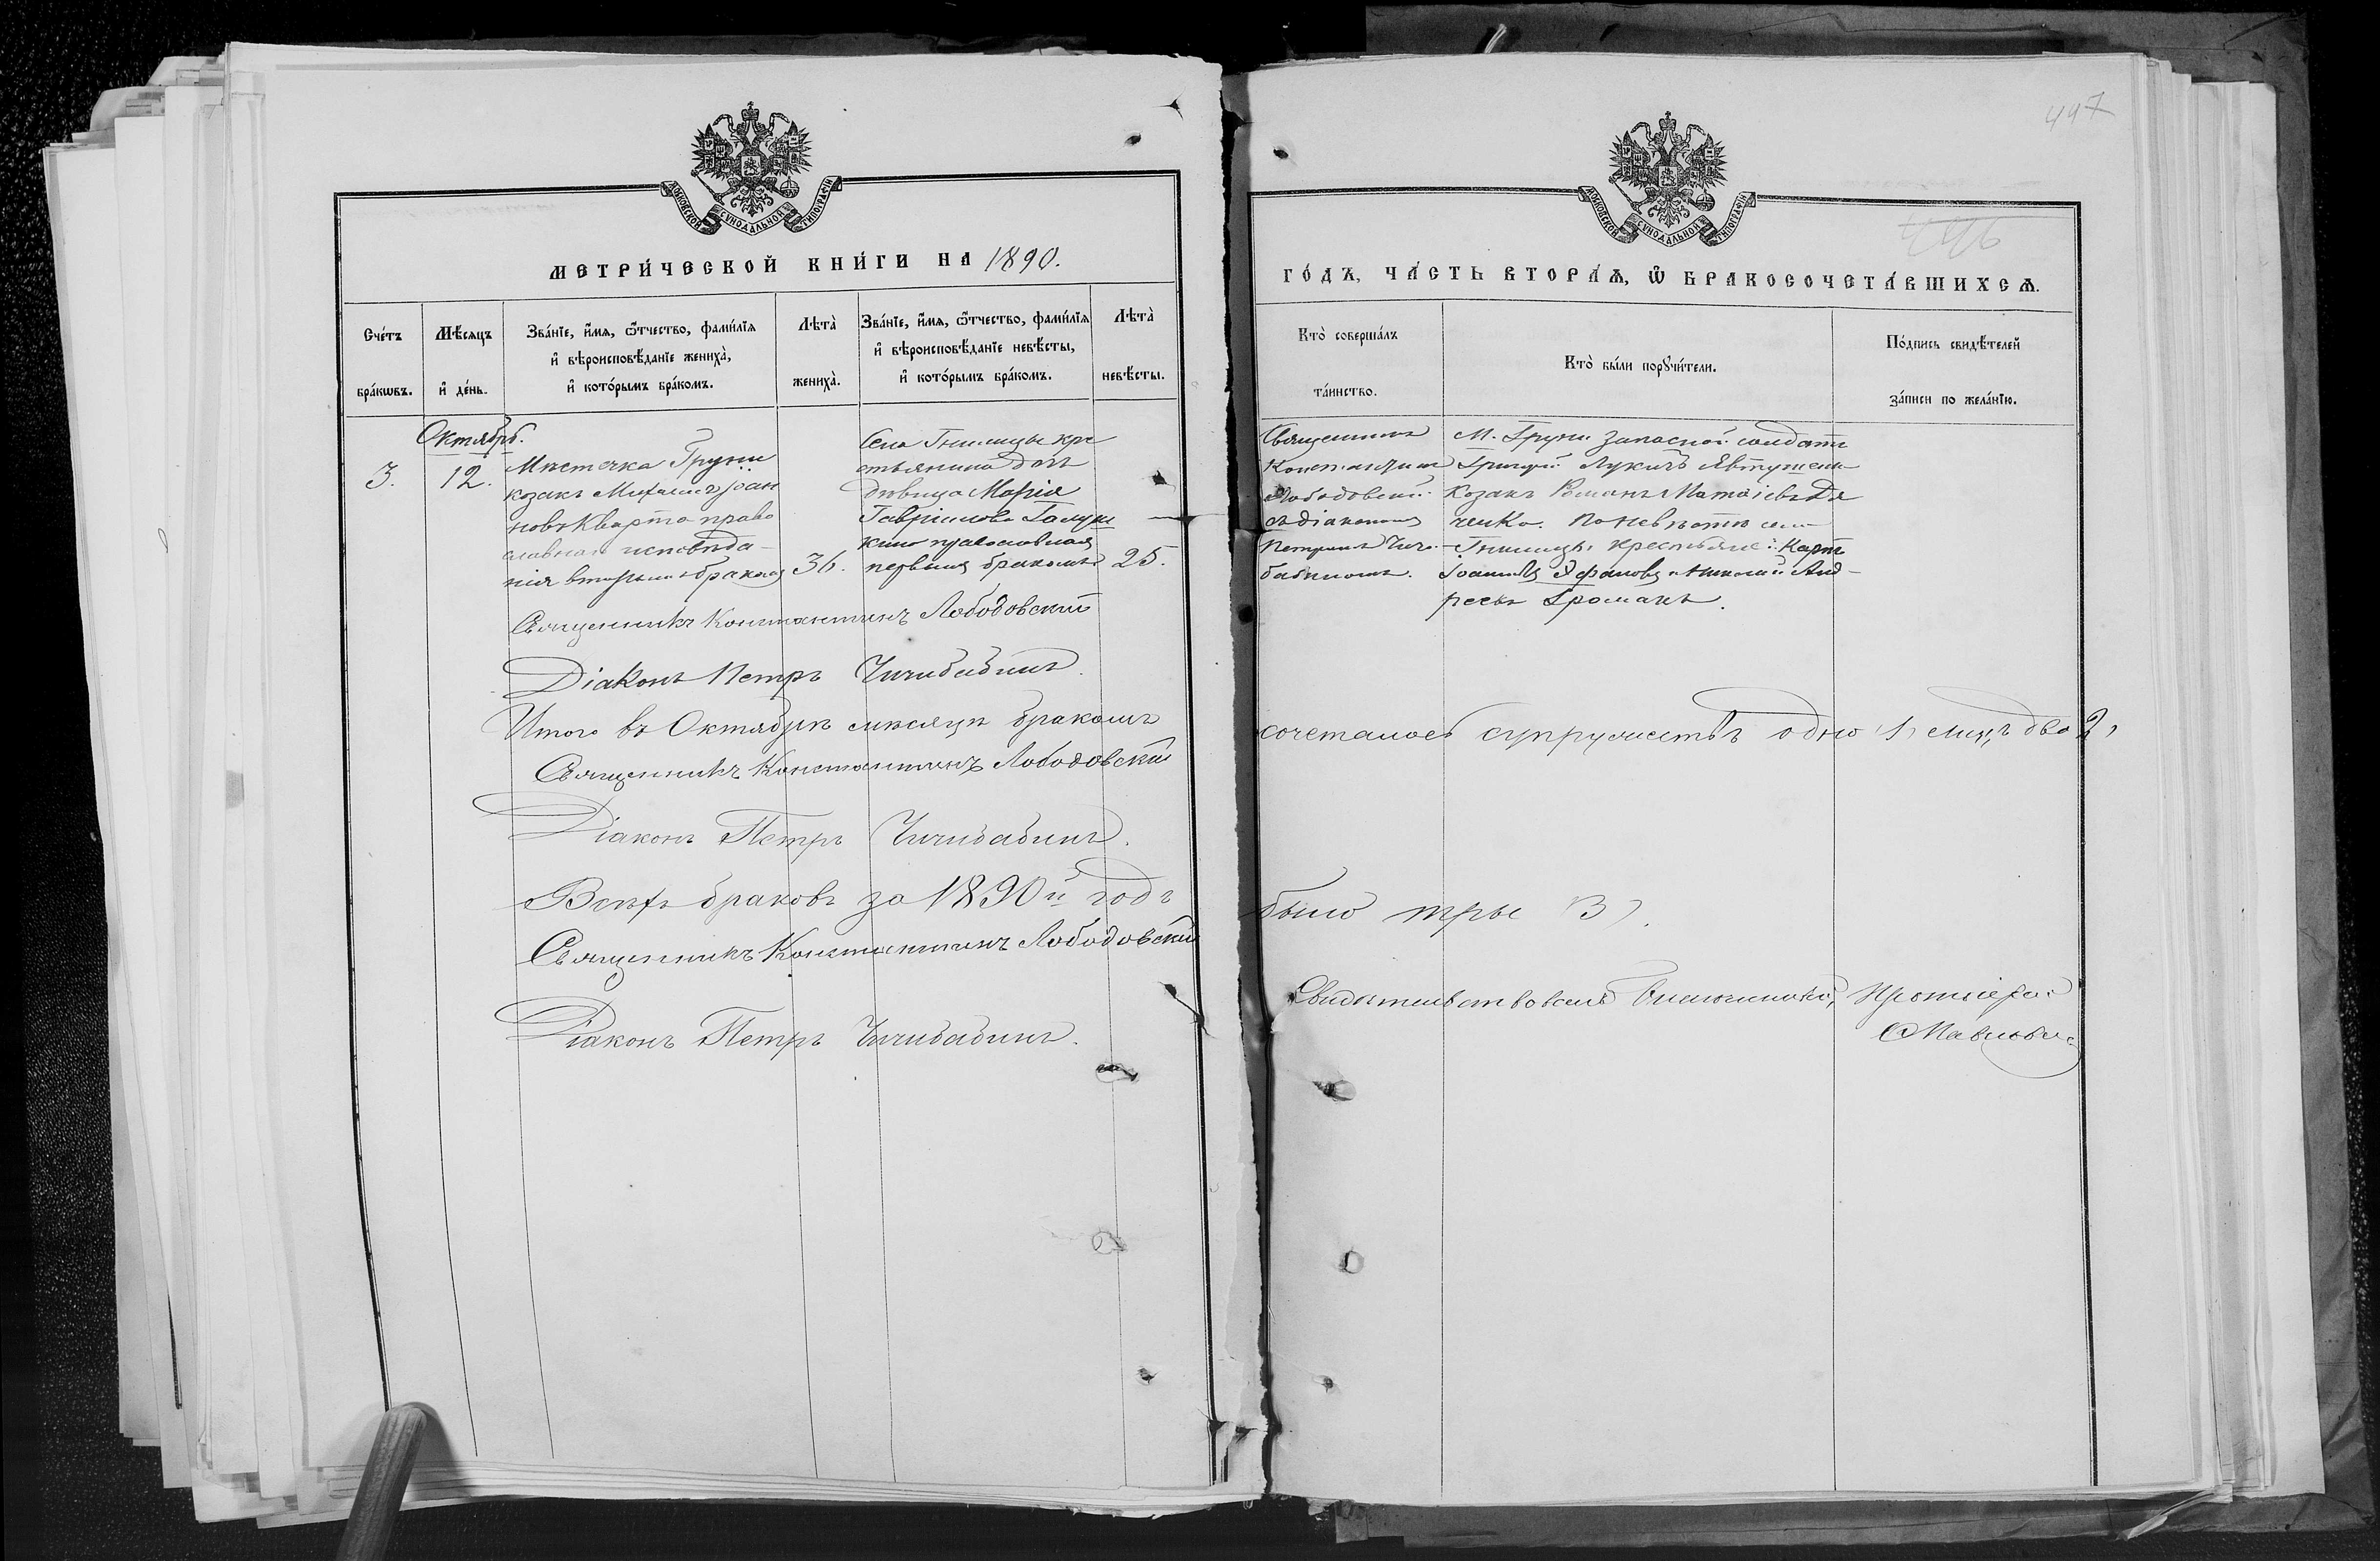 497
446
МОСКОВСКОЙ СѴНОДАЛЬНОЙ ТИПОГРАФІИ
МЕТРИ́ЧЕСКОЙ КНИ́ГИ НА 1890.
Сче́тъ бра́кѡвъ.
Мѣ́сяцъ и҆ де́нь.
Зва́нїе, и҆́мѧ, ѻ҆́тчество, фами́лїѧ
и҆ вѣроисповѣ́данїе жениха̀,
и҆ кото́рымъ бра́комъ.
Лѣта̀ жениха̀.
Зва́нїе, и҆́мѧ, ѻ҆́тчество, фами́лїѧ
и҆ вѣроисповѣ́данїе невѣ́сты,
и҆ кото́рымъ бра́комъ.
Лѣта̀ невѣ́сты.
Октябрь.
3.
12.
Мѣстечка Груни
козакъ Михаилъ Іоан
новъ Кварта право
славнаго исповѣда-
нія вторымъ бракомъ
36.
Села Гнилицы кре
стьянина доч
дѣвица Марія
Гавріилова Галуш
кина православная
первымъ бракомъ
25.
Священникъ Константинъ Лободовскій
Діаконъ Петръ Чичибабинъ.
Итого въ Октябрѣ мѣсяцѣ бракомъ
Священникъ Константинъ Лободовскій
Діаконъ Петръ Чичибабинъ.
Всѣхъ браковъ за 1890й годъ
Священникъ Константинъ Лободовскій
Діаконъ Петръ Чичибабинъ.
МОСКОВСКОЙ СѴНОДАЛЬНОЙ ТИПОГРАФІИ
ГО́ДЪ, ЧА́СТЬ ВТОРА́Ѧ, Ѽ БРАКОСОЧЕТА́ВШИХСѦ.
Кто̀ соверша́лъ
та́инство.
Кто̀ бы́ли порꙋчи́тели.
По́дпись свидѣ́телей
за́писи по жела́нїю.
Священникъ
Константинъ
Лободовскій
съ діакономъ
Петромъ Чичи-
бабинымъ.
М. Груни запасной солдатъ
Григорій Лукичъ Явтушенк
Козакъ Романъ Матѳіевъ Дя
ченко. По невѣстѣ села
Гнилицы крестьяне: Карпъ
Іоанновъ и Николай Анд-
реевъ Громакъ.
сочеталось супружествъ одно 1, лицъ два 2,
было три 3).
Свидетельствовалъ Протоіерей